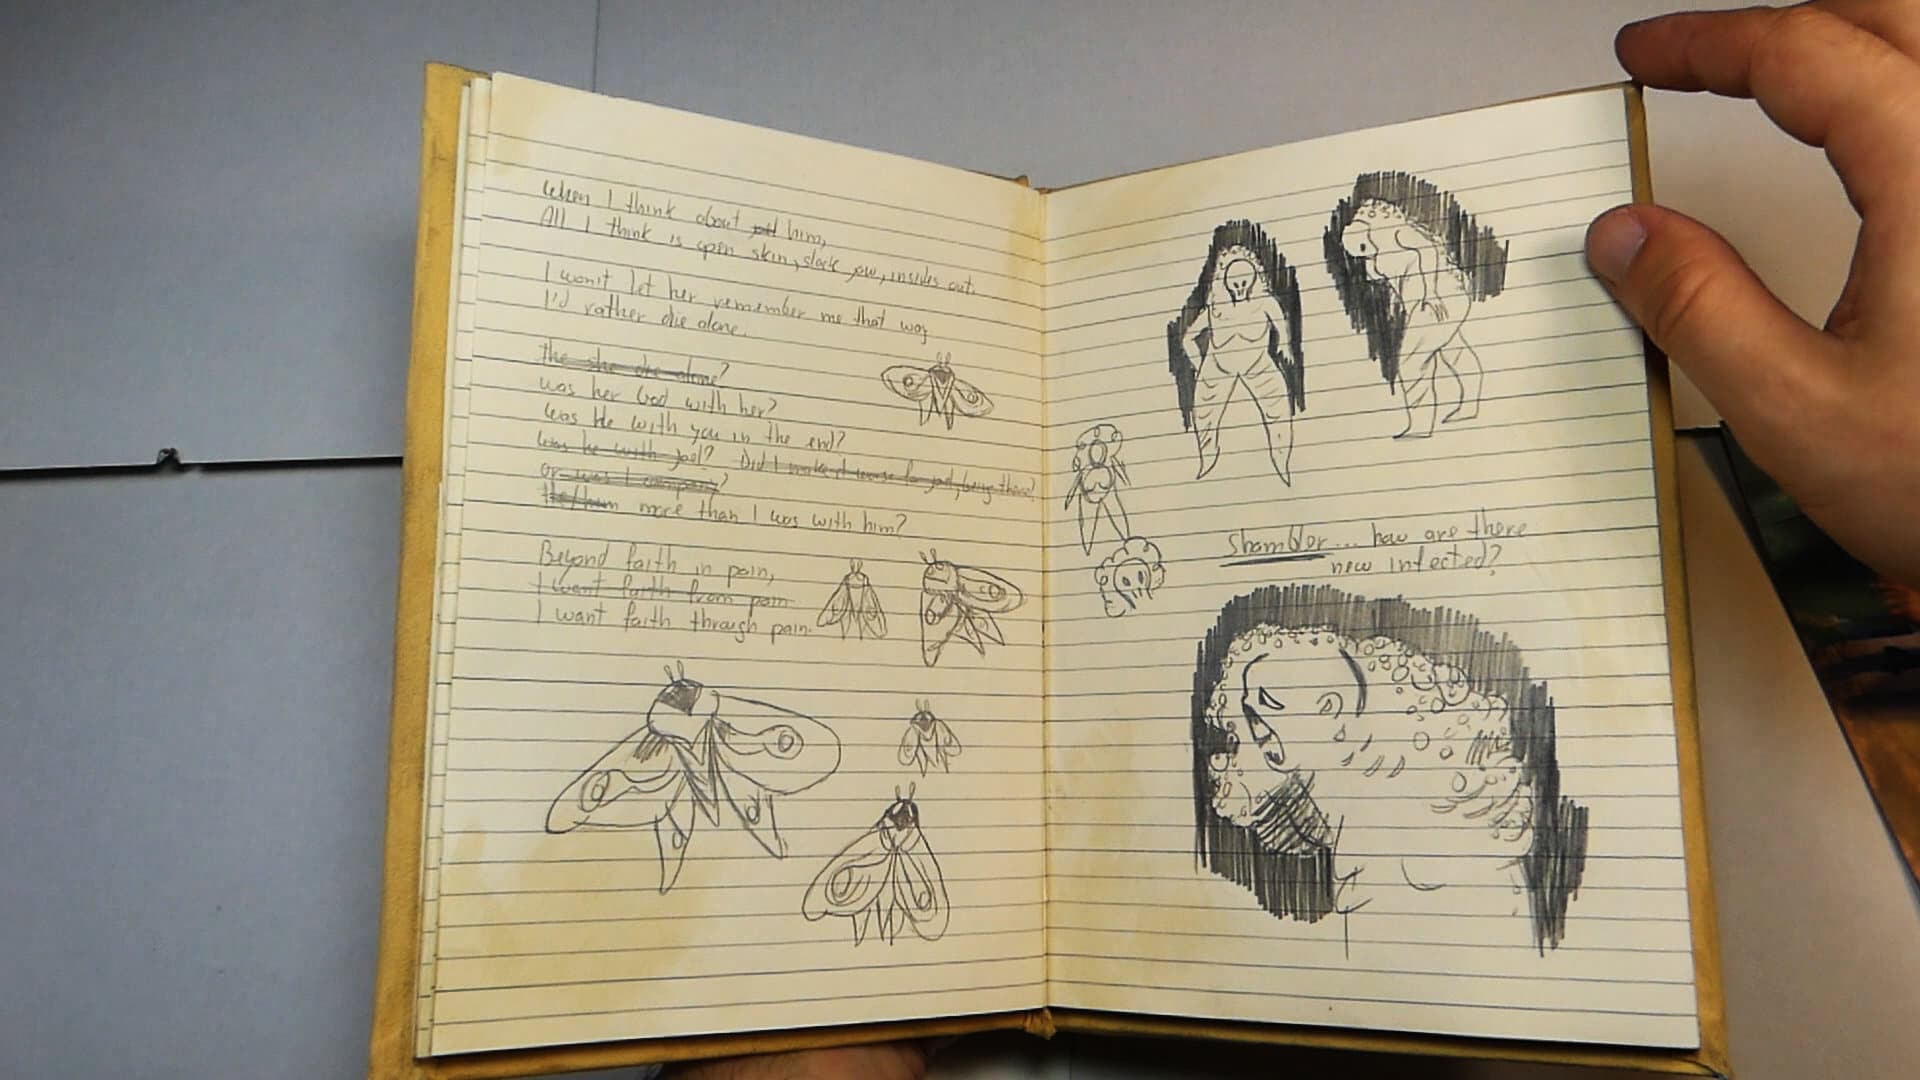 When I think about him,
All I think is open skin, slack jaw, insides out.
I won't let her remember me that way
I'd rather die alone.
the she die alone?
was her God with her?
was He with you in the end?
Was he with Joel? Did I make it worse for Joel, being there?
or was I company?
more than I was with him?
Beyond faith in pain,
I want faith from pain
I want faith through pain.
Shambler... how are there
new infected?